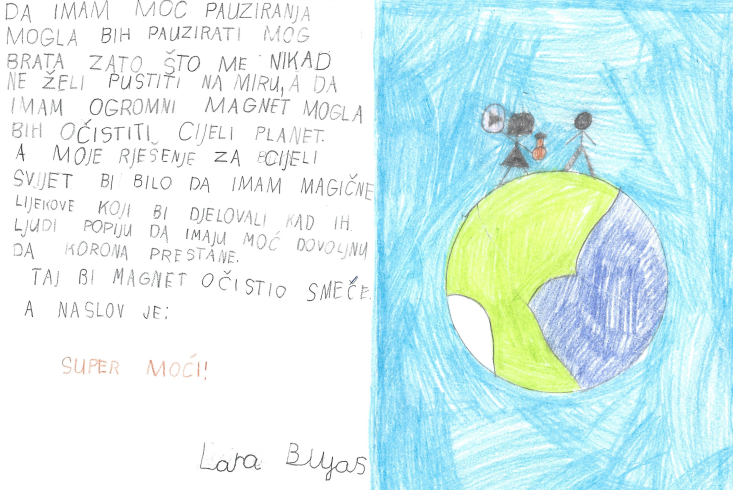 DA IMAM MOĆ PAUZIRANJA
MOGLA BIH PAUZIRATI MOG
BRATA ZATO ŠTO ME NIKAD
NE ŽELI PUSTITI NA MIRU, A DA
IMAM OGROMNI MAGNET MOGLA
BIH OČISTITI CIJELI PLANET.
A MOJE RJEŠENJE ZA CIJELI
SVIJET BI BILO DA IMAM MAGIČNE
LIJEKOVE KOJI BI DJELOVALI KAD IH
LJUDI POPIJU DA IMAJU MOĆ DOVOLJNU
DA KORONA PRESTANE.
TAJ BI MAGNET OČISTIO SMEČE.
A NASLOV JE:
SUPER MOĆI!
Lara Bujas